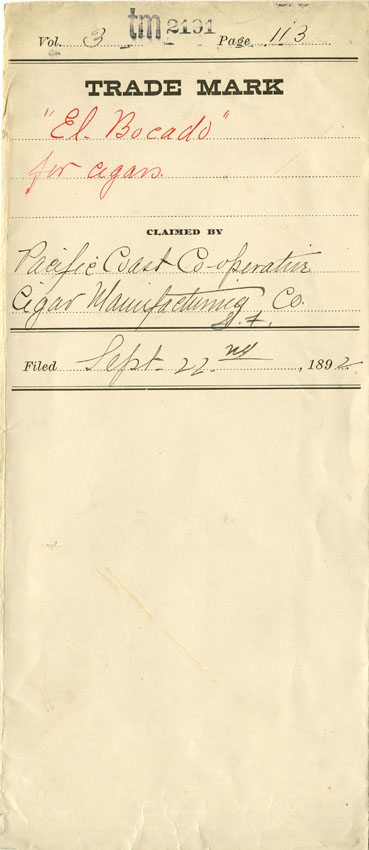 tm 2191
Vol. 3 Page 113
TRADE MARK
"El Bocado"
for cigars.
CLAIMED BY
Pacific Coast Co-operative
Cigar Manufacturing Co.
S. F.
Filed Sept. 22nd, 1892